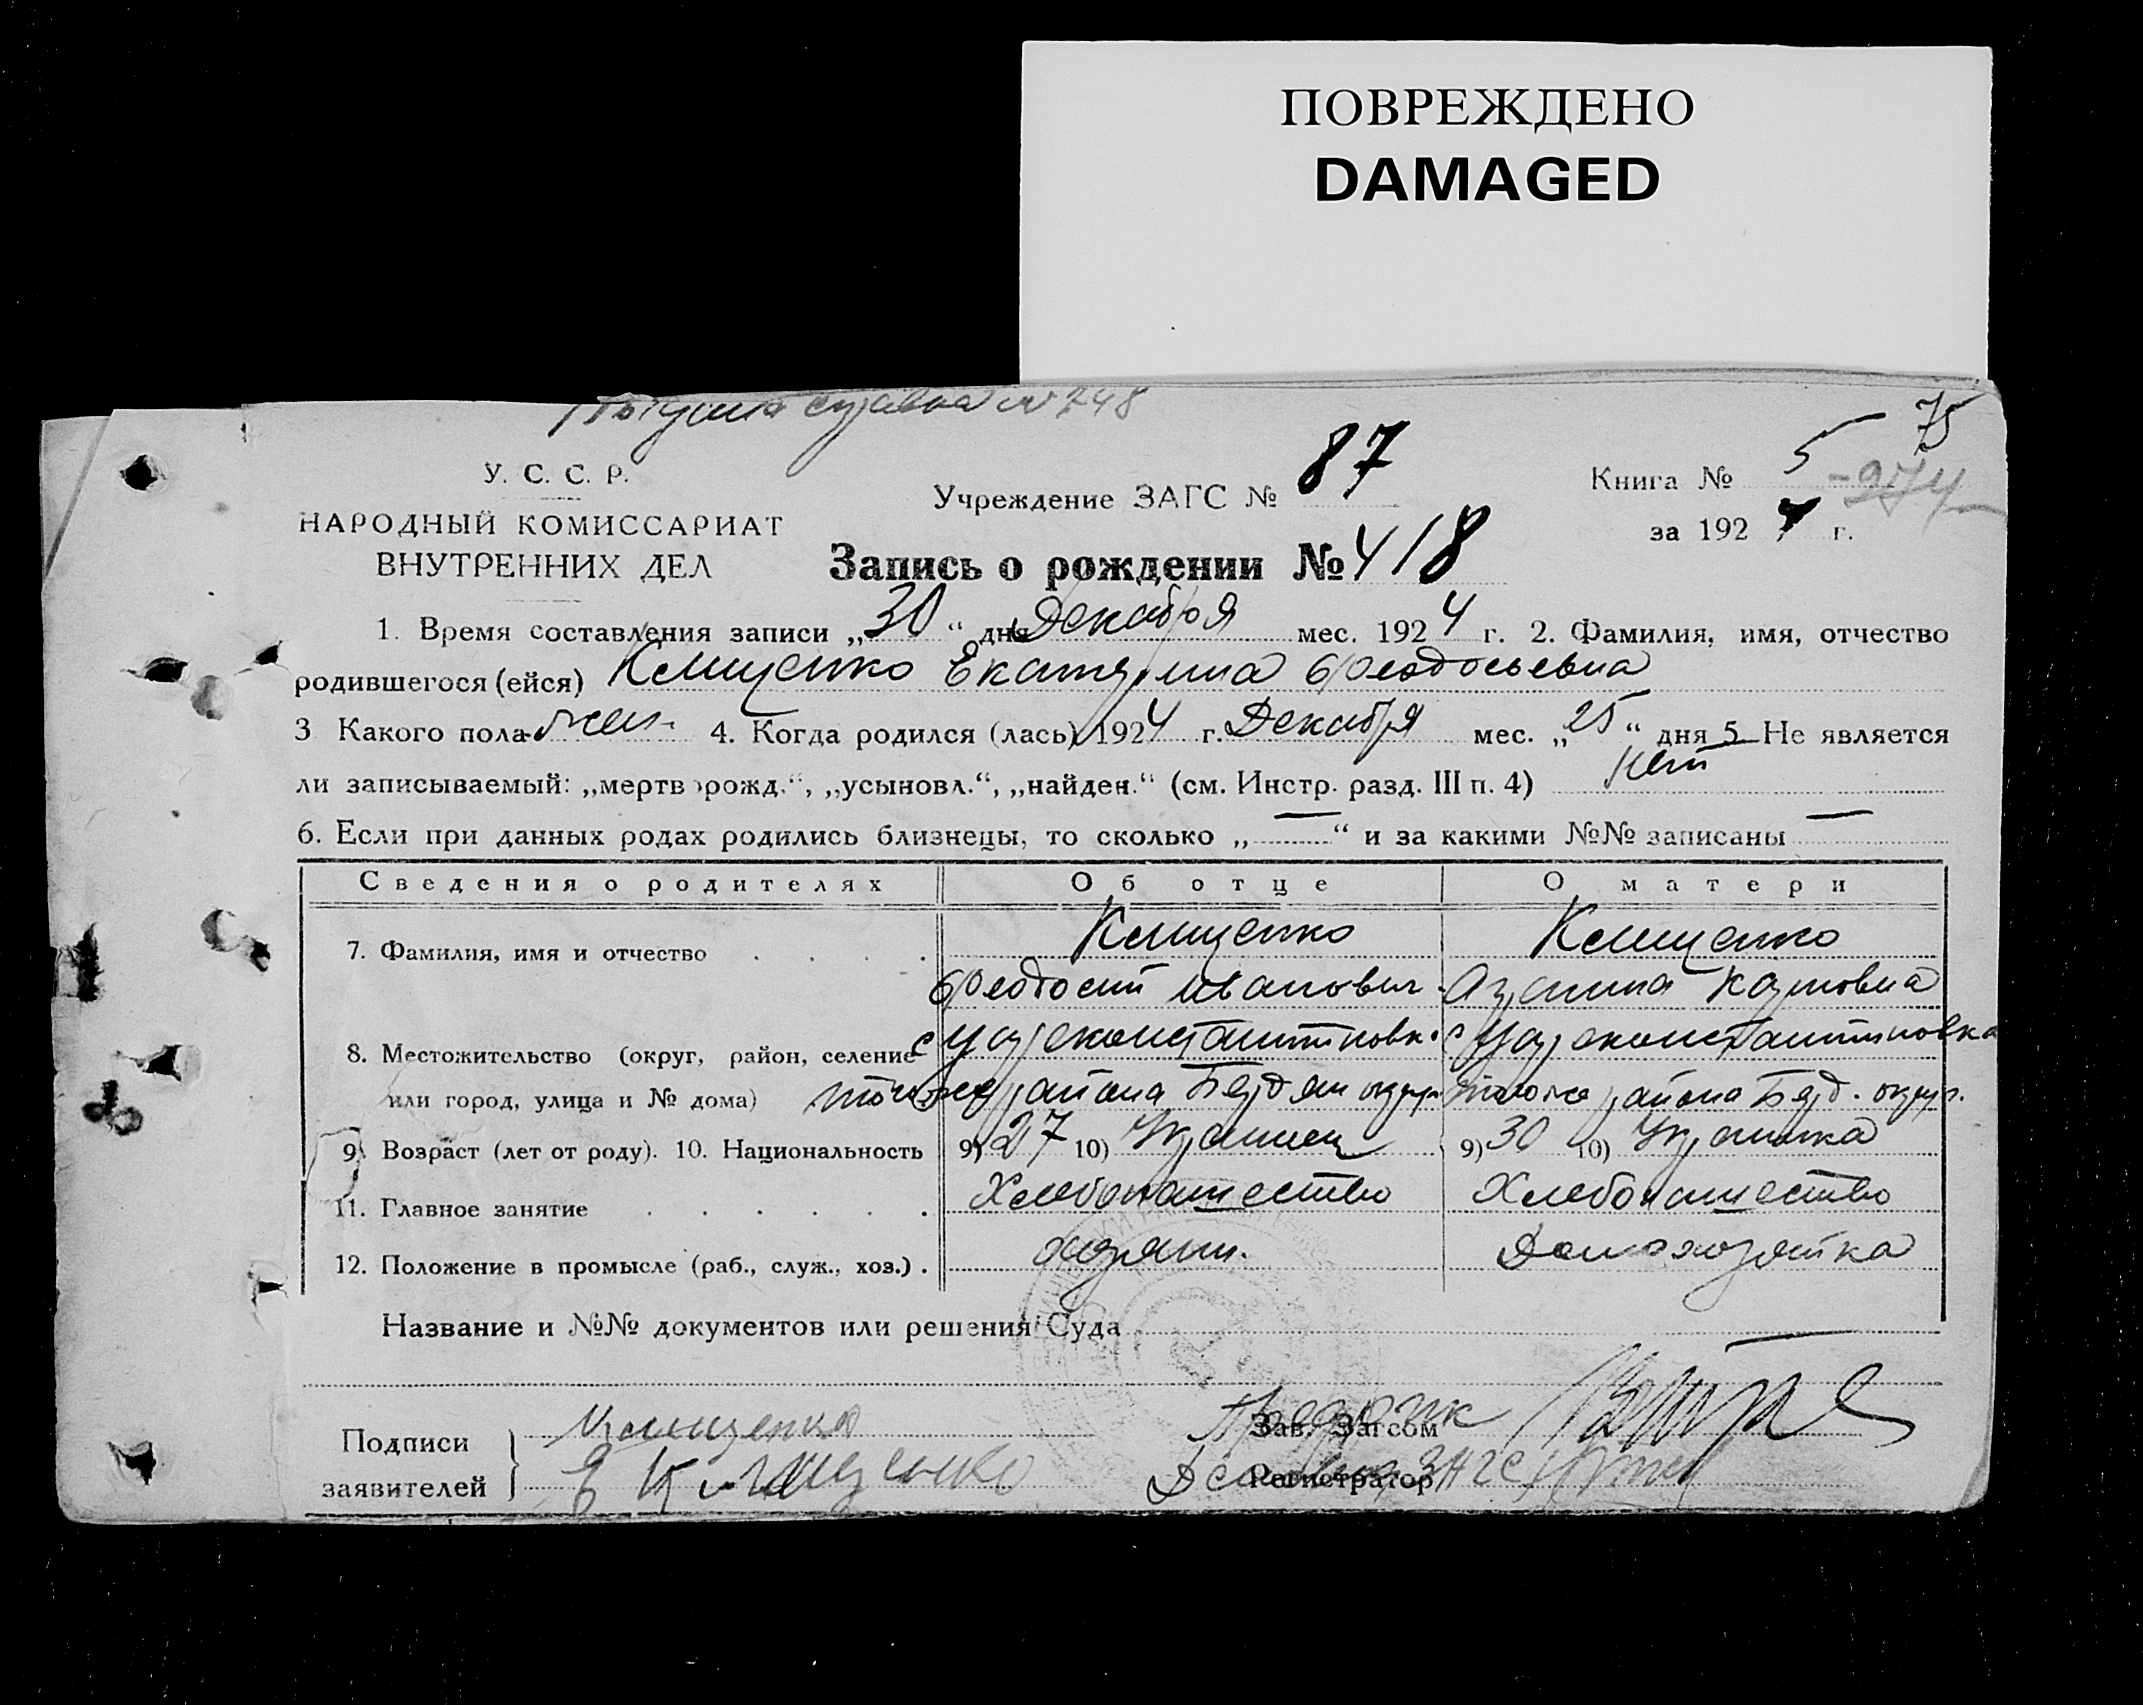 ПОВРЕЖДЕНО
DAMAGED
справка № 248
75
У. С. С. Р.
Учреждение ЗАГС № 87
Книга № 5
НАРОДНЫЙ КОМИССАРИАТ
ВНУТРЕННИХ ДЕЛ
за 1924 г.
Запись о рождении № 418
1. Время составления записи „30“ дня Декабря мес. 1924 г. 2. Фамилия, имя, отчество
родившегося (ейся) Клищенко Екатерина Феодосьевна
3 Какого пола жен. 4. Когда родился (лась) 1924 г. Декабря мес. „25“ дня 5 Не является
ли записываемый: „мертворожд.“, „усыновл.“, „найден.“ (см. Инстр. разд. III п. 4) Нет
6. Если при данных родах родились близнецы, то сколько „—“ и за какими №№ записаны —
Сведения о родителях Об отце О матери
7. Фамилия, имя и отчество Клищенко Клищенко
Феодосий Иванович Карповна
8. Местожительство (округ, район, селение с Цареконстантиновк. с Цареконстантиновка
или город, улица и № дома) того же района Бердян округ того же района Берд. округ.
9. Возраст (лет от роду). 10. Национальность 9) 27 10) Украинец 9) 30 10) Украинка
11. Главное занятие Хлебопашество Хлебопашество
12. Положение в промысле (раб., служ., хоз.) хозяин. Домохозяйка
Название и №№ документов или решения Суда
Подписи Клищенко Зав. Загсом
заявителей Е Клищенко Регистратор